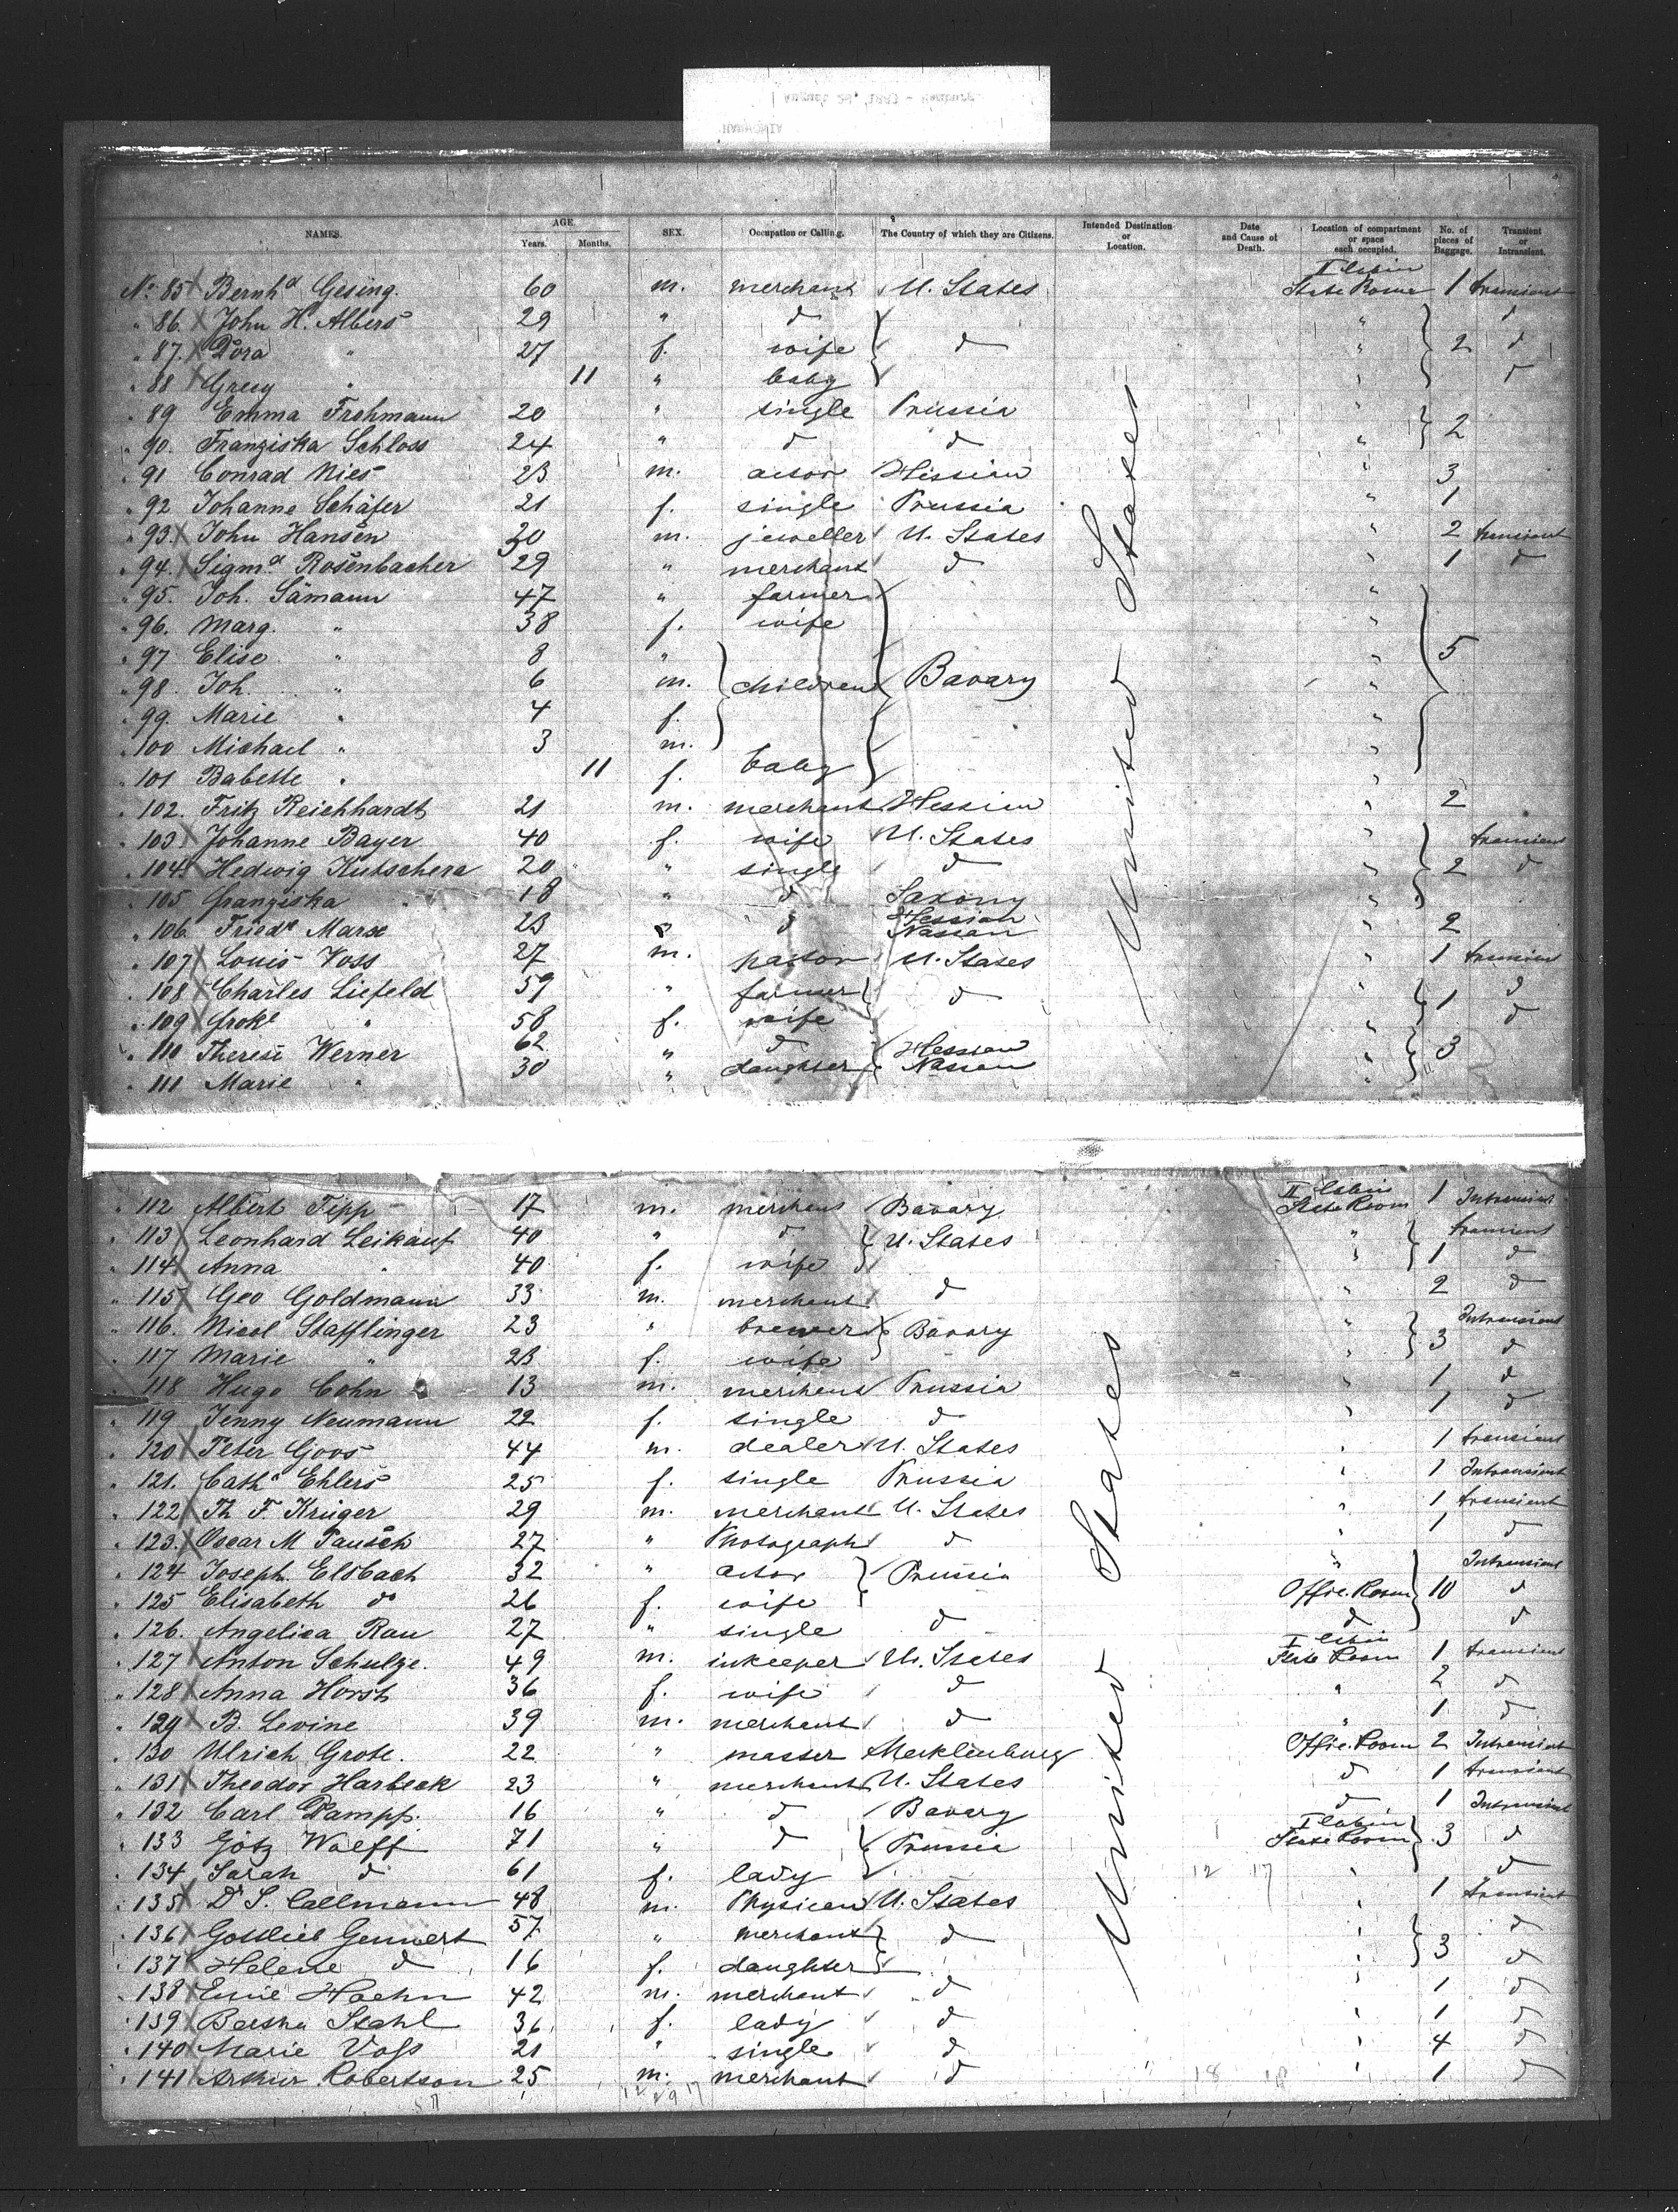 NAMES. AGE. Years. Months. SEX. Occupation or Calling. The Country of which they are Citizens. Intended Destination or Location. Date and Cause of Death. Location of compartment or space each occupied. No. of pieces of Baggage. Transient or Intransient.
No. 85 X Bernhd Gesing. 60 m. merchant U. States II Cabin State Room 1 transient
" 86. X John H. Albers 29 " d " d
" 87. X Dora " 27 f. wife d " 2 d
" 88 X Grecy " 11 " baby " d
" 89 Emma Frohmann 20 " single Prussia "
" 90. Franziska Schloss 24 " d d " 2
" 91 Conrad Nies 23 m. actor Hessian " 3
" 92 Johanne Schäfer 21 f. single Prussia " 1
" 93. X John Hansen 30 m. jeweller U. States " 2 transient
" 94. X Sigmd Rosenbacher 29 " merchant d " 1 d
" 95. Joh. Sämann 47 " farmer "
" 96. Marg. " 38 f. wife "
" 97 Elise " 8 " " 5
" 98. Joh. " 6 m. children Bavary "
" 99. Marie " 4 f. "
" 100 Michael " 3 m. "
" 101 Babette " 11 f. baby "
" 102. Fritz Reichhardt 21 m. merchant Hessian " 2
" 103 X Johanne Bayer 40 f. wife U. States " transient
" 104 X Hedwig Kutschera 20 " single d " 2 d
" 105 Franziska " 18 " d Saxony "
" 106. Friedr Marse 23 " d Hessian Nassau " 2
" 107 X Louis Voss 27 m. pastor U. States " 1 transient
" 108 X Charles Liefeld 59 " farmer d " 1 d
" 109 X " 58 f. wife " d
" 110 Therese Werner 62 " d Hessian Nassau " 3
" 111 Marie " 30 " daughter "
United States
" 112 Albert Tipp 17 m. merchant Bavary II Cabin State Room 1 Intransient
" 113 X Leonhard Leikauf 40 " d U. States " transient
" 114 X Anna " 40 f. wife " 1 d
" 115 X Geo Goldmann 33 m. merchant d " 2 d
" 116. Nicol Stafflinger 23 " brewer Bavary " Intransient
" 117 Marie " 23 f. wife " 3 d
" 118 Hugo Cohn 13 m. merchant Prussia " 1 d
" 119 Jenny Neumann 22 f. single d " 1 d
" 120 X Peter Goos 44 m. dealer U. States " 1 transient
" 121. Catha Ehlers 25 f. single Prussia " 1 Intransient
" 122 X Th F Krüger 29 m. merchant U. States " 1 transient
" 123. X Oscar M Pausch 27 " Photograph d " 1 d
" 124 Joseph Elsbach 32 " actor Prussia " Intransient
" 125 Elisabeth do 26 f. wife Offic. Room 10 d
" 126. Angelica Rau 27 " single d d d
" 127 X Anton Schulze. 49 m. inkeeper U. States I Cabin State Room 1 transient
" 128 X Anna Horst 36 f. wife d " 2 d
" 129 X B. Levine 39 m. merchant d " 1 d
" 130 Ulrich Grote. 22 " master Mecklenburg Offic. Room 2 Intransient
" 131 X Theodor Harbeck 23 " merchant U. States d 1 transient
" 132 Carl Dampf. 16 " d Bavary d 1 Intransient
" 133 Götz Wolff 71 " d Prussia I Cabin State Room 3 d
" 134 Sarah d 61 f. lady 12 17 " d
" 135 X Dr S. Callmann 48 m. Physican U. States " 1 transient
" 136 X Gottlieb Gennert 57 " merchant d " d
" 137 X Helene d 16 f. daughter " 3 d
" 138 X Haehn 42 m. merchant d " 1 d
" 139 X Bertha Stahl 36 f. lady d " 1 d
" 140 X Marie Voss 21 " single d " 4 d
" 141 X Arthur Robertson 25 m. merchant d 18 18 " 1 d
United States